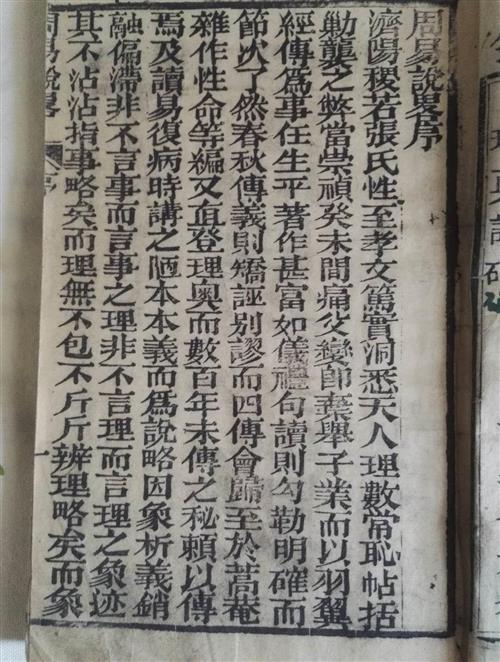 周易說畧序
濟陽稷若張氏性至孝文篤實洞悉天人理數常恥帖括
勦襲之弊當崇禎癸未間痛父變卽棄舉子業而以羽翼
經傳爲事在生平著作甚富如儀禮句讀則勾勒明確而
節次了然春秋傳義則矯誣别謬而四傳會歸至於蒿菴
雜作性命等編又直登理奥而數百年未傳之秘頼以傳
焉及讀易復病時講之陋本本義而爲說略因象析義銷
融偏滯非不言事而言事之理非不言理而言理之象迹
其不沾沾指事略矣而理無不包不斤斤辨理略矣而象
周易說畧
序
一